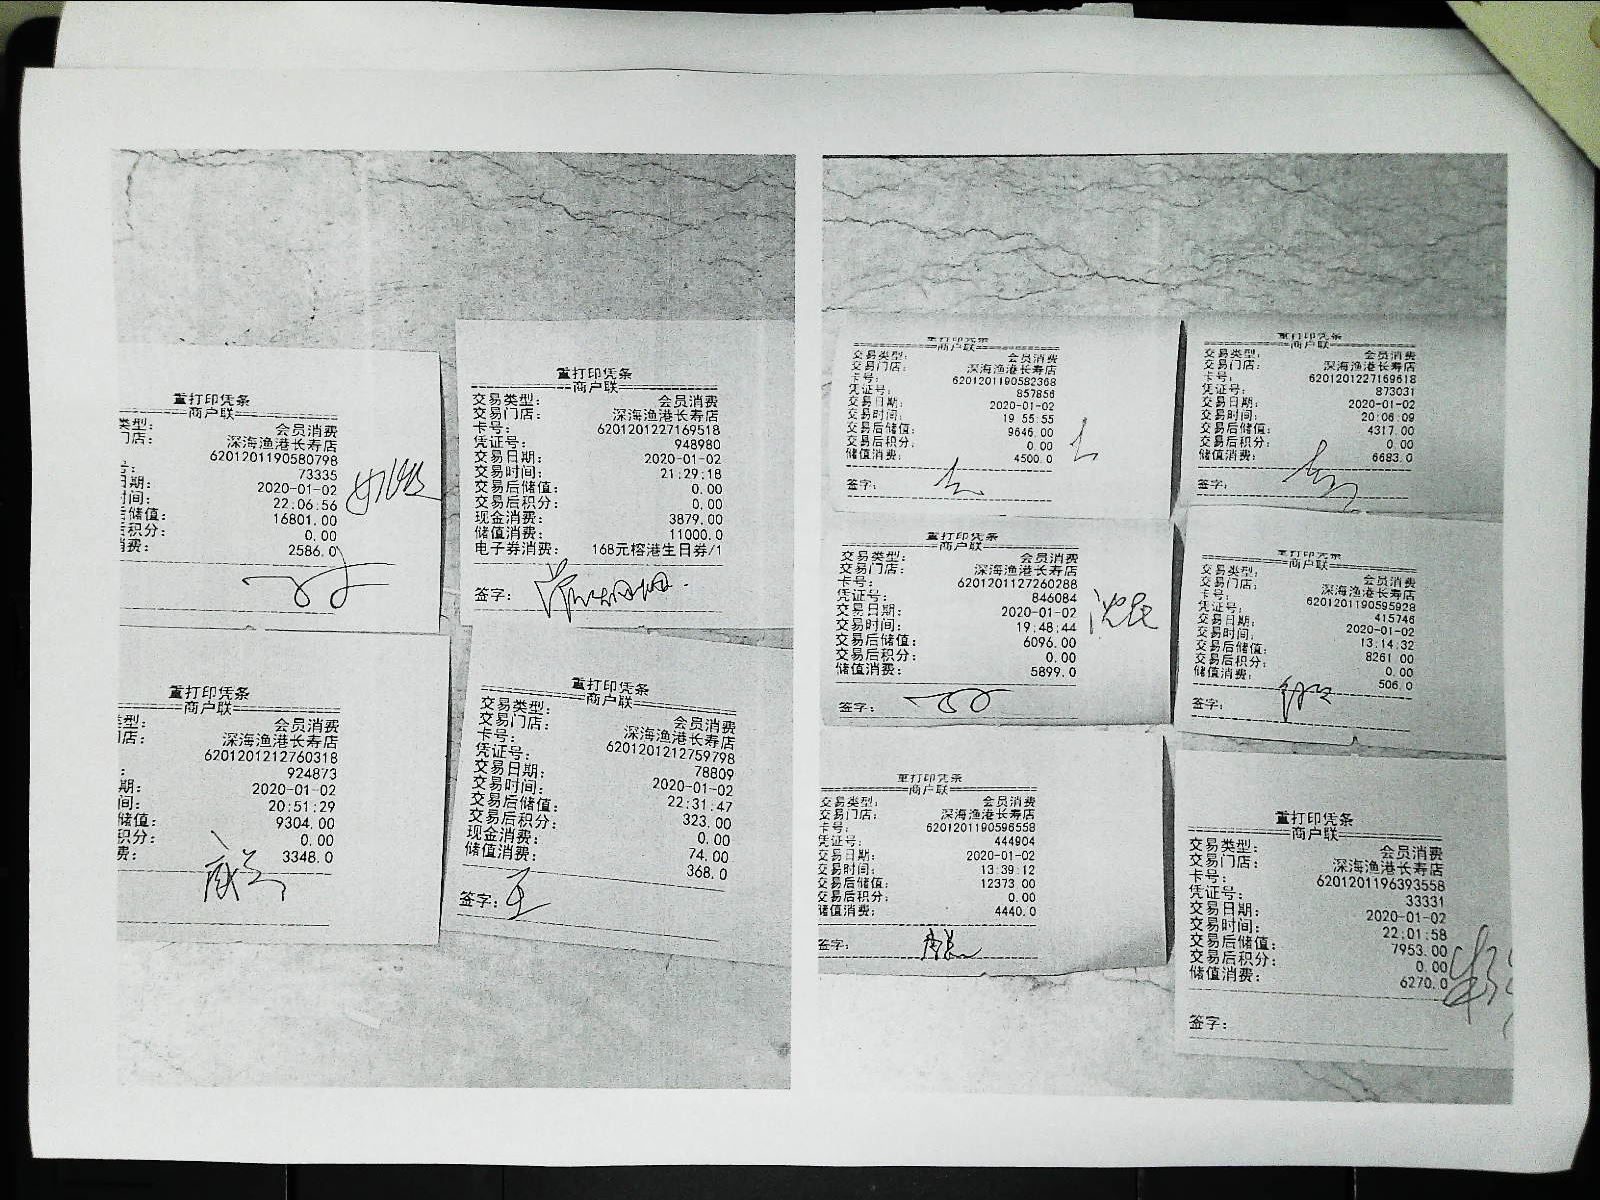 重打印凭条
商户联
类型: 会员消费
门店: 深海渔港长寿店
号: 6201201190580798
73335
日期: 2020-01-02
时间: 22:06:56
储值: 16801.00
积分: 0.00
消费: 2586.0
重打印凭条
商户联
交易类型: 会员消费
交易门店: 深海渔港长寿店
卡号: 6201201227169518
凭证号: 948980
交易日期: 2020-01-02
交易时间: 21:29:18
交易后储值: 0.00
交易后积分: 0.00
现金消费: 3879.00
储值消费: 11000.0
电子券消费: 168元榕港生日券/1
签字:
重打印凭条
商户联
类型: 会员消费
门店: 深海渔港长寿店
: 6201201212760318
924873
期: 2020-01-02
间: 20:51:29
储值: 9304.00
积分: 0.00
费: 3348.0
重打印凭条
商户联
交易类型: 会员消费
交易门店: 深海渔港长寿店
卡号: 6201201212759798
凭证号: 78809
交易日期: 2020-01-02
交易时间: 22:31:47
交易后储值: 323.00
交易后积分: 0.00
现金消费: 74.00
储值消费: 368.0
签字: 王
重打印凭条
商户联
交易类型: 会员消费
交易门店: 深海渔港长寿店
卡号: 6201201190582368
凭证号: 857856
交易日期: 2020-01-02
交易时间: 19:55:55
交易后储值: 9646.00
交易后积分: 0.00
储值消费: 4500.0
签字:
重打印凭条
商户联
交易类型: 会员消费
交易门店: 深海渔港长寿店
卡号: 6201201227169618
凭证号: 873031
交易日期: 2020-01-02
交易时间: 20:06:09
交易后储值: 4317.00
交易后积分: 0.00
储值消费: 6683.0
签字:
重打印凭条
商户联
交易类型: 会员消费
交易门店: 深海渔港长寿店
卡号: 6201201127260288
凭证号: 846084
交易日期: 2020-01-02
交易时间: 19:48:44
交易后储值: 6096.00
交易后积分: 0.00
储值消费: 5899.0
签字:
重打印凭条
商户联
交易类型: 会员消费
交易门店: 深海渔港长寿店
卡号: 6201201190595928
凭证号: 415746
交易日期: 2020-01-02
交易时间: 13:14:32
交易后储值: 8261.00
交易后积分: 0.00
储值消费: 506.0
签字:
重打印凭条
商户联
交易类型: 会员消费
交易门店: 深海渔港长寿店
卡号: 6201201190596558
凭证号: 444904
交易日期: 2020-01-02
交易时间: 13:39:12
交易后储值: 12373.00
交易后积分: 0.00
储值消费: 4440.0
签字:
重打印凭条
商户联
交易类型: 会员消费
交易门店: 深海渔港长寿店
卡号: 6201201196393558
凭证号: 33331
交易日期: 2020-01-02
交易时间: 22:01:58
交易后储值: 7953.00
交易后积分: 0.00
储值消费: 6270.0
签字: